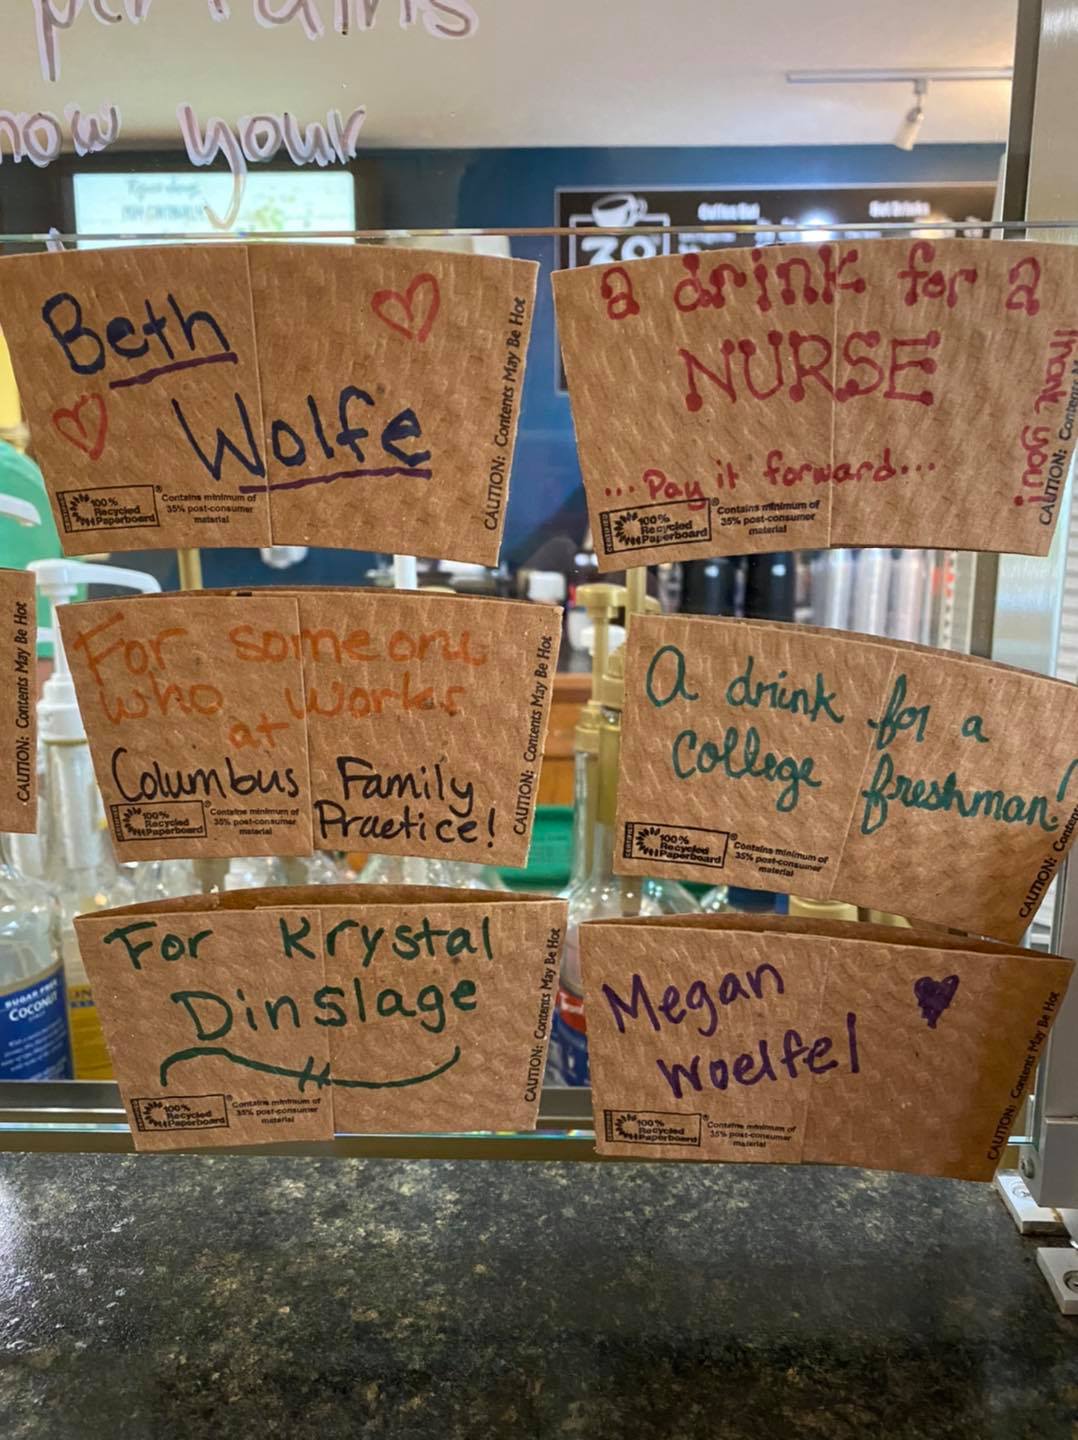 now your
Beth
Wolfe
100%
Recycled
Paperboard
Contains minimum of
35% post-consumer
material
CAUTION: Contents May Be Hot
a drink for a
NURSE
...Pay it forward...
Thank you!
100%
Recycled
Paperboard
Contains minimum of
35% post-consumer
material
CAUTION: Contents May Be Hot
CAUTION: Contents May Be Hot
For someone
who works
at
Columbus Family
Practice!
100%
Recycled
Paperboard
Contains minimum of
35% post-consumer
material
CAUTION: Contents May Be Hot
A drink for a
college freshman!
100%
Recycled
Paperboard
Contains minimum of
35% post-consumer
material
CAUTION:
For Krystal
Dinslage
100%
Recycled
Paperboard
Contains minimum of
35% post-consumer
material
CAUTION: Contents May Be Hot
Megan
Woelfel
100%
Recycled
Paperboard
Contains minimum of
35% post-consumer
material
CAUTION: Contents May Be Hot
SUGAR FREE
COCONUT